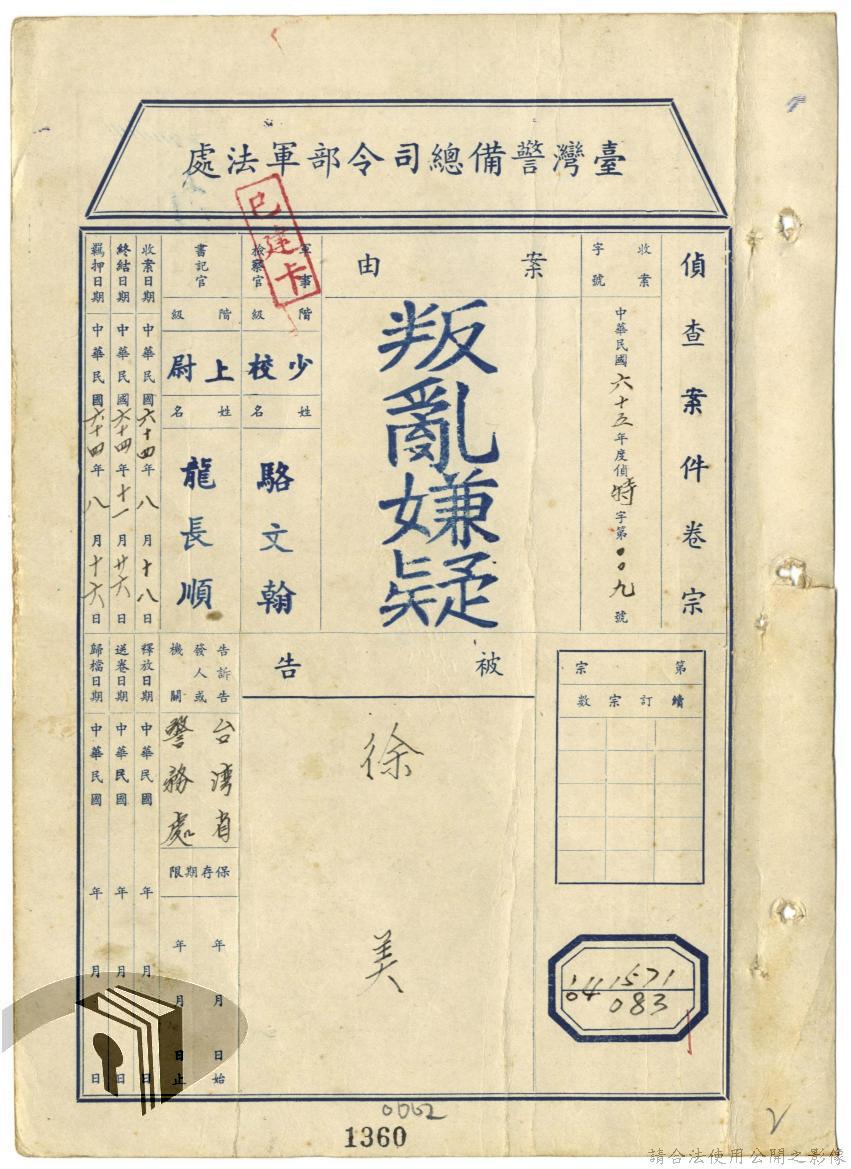 臺灣警備總司令部軍法處
已建卡
偵查案件卷宗
收案字號
中華民國六十五年度偵特字第〇〇九號
案由
叛亂嫌疑
軍事檢察官
階級
少校
姓名
駱文翰
書記官
階級
上尉
姓名
龍長順
收案日期 中華民國六十四年八月十八日
終結日期 中華民國六十四年十一月廿六日
羈押日期 中華民國六十四年八月十六日
第宗
續訂宗數
被告
徐美
告訴告發人或機關
台湾省警務處
保存期限
年月日始
年月日止
釋放日期 中華民國年月日
送卷日期 中華民國年月日
歸檔日期 中華民國年月日
104 1571
083
0062
1360
請合法使用公開之影像